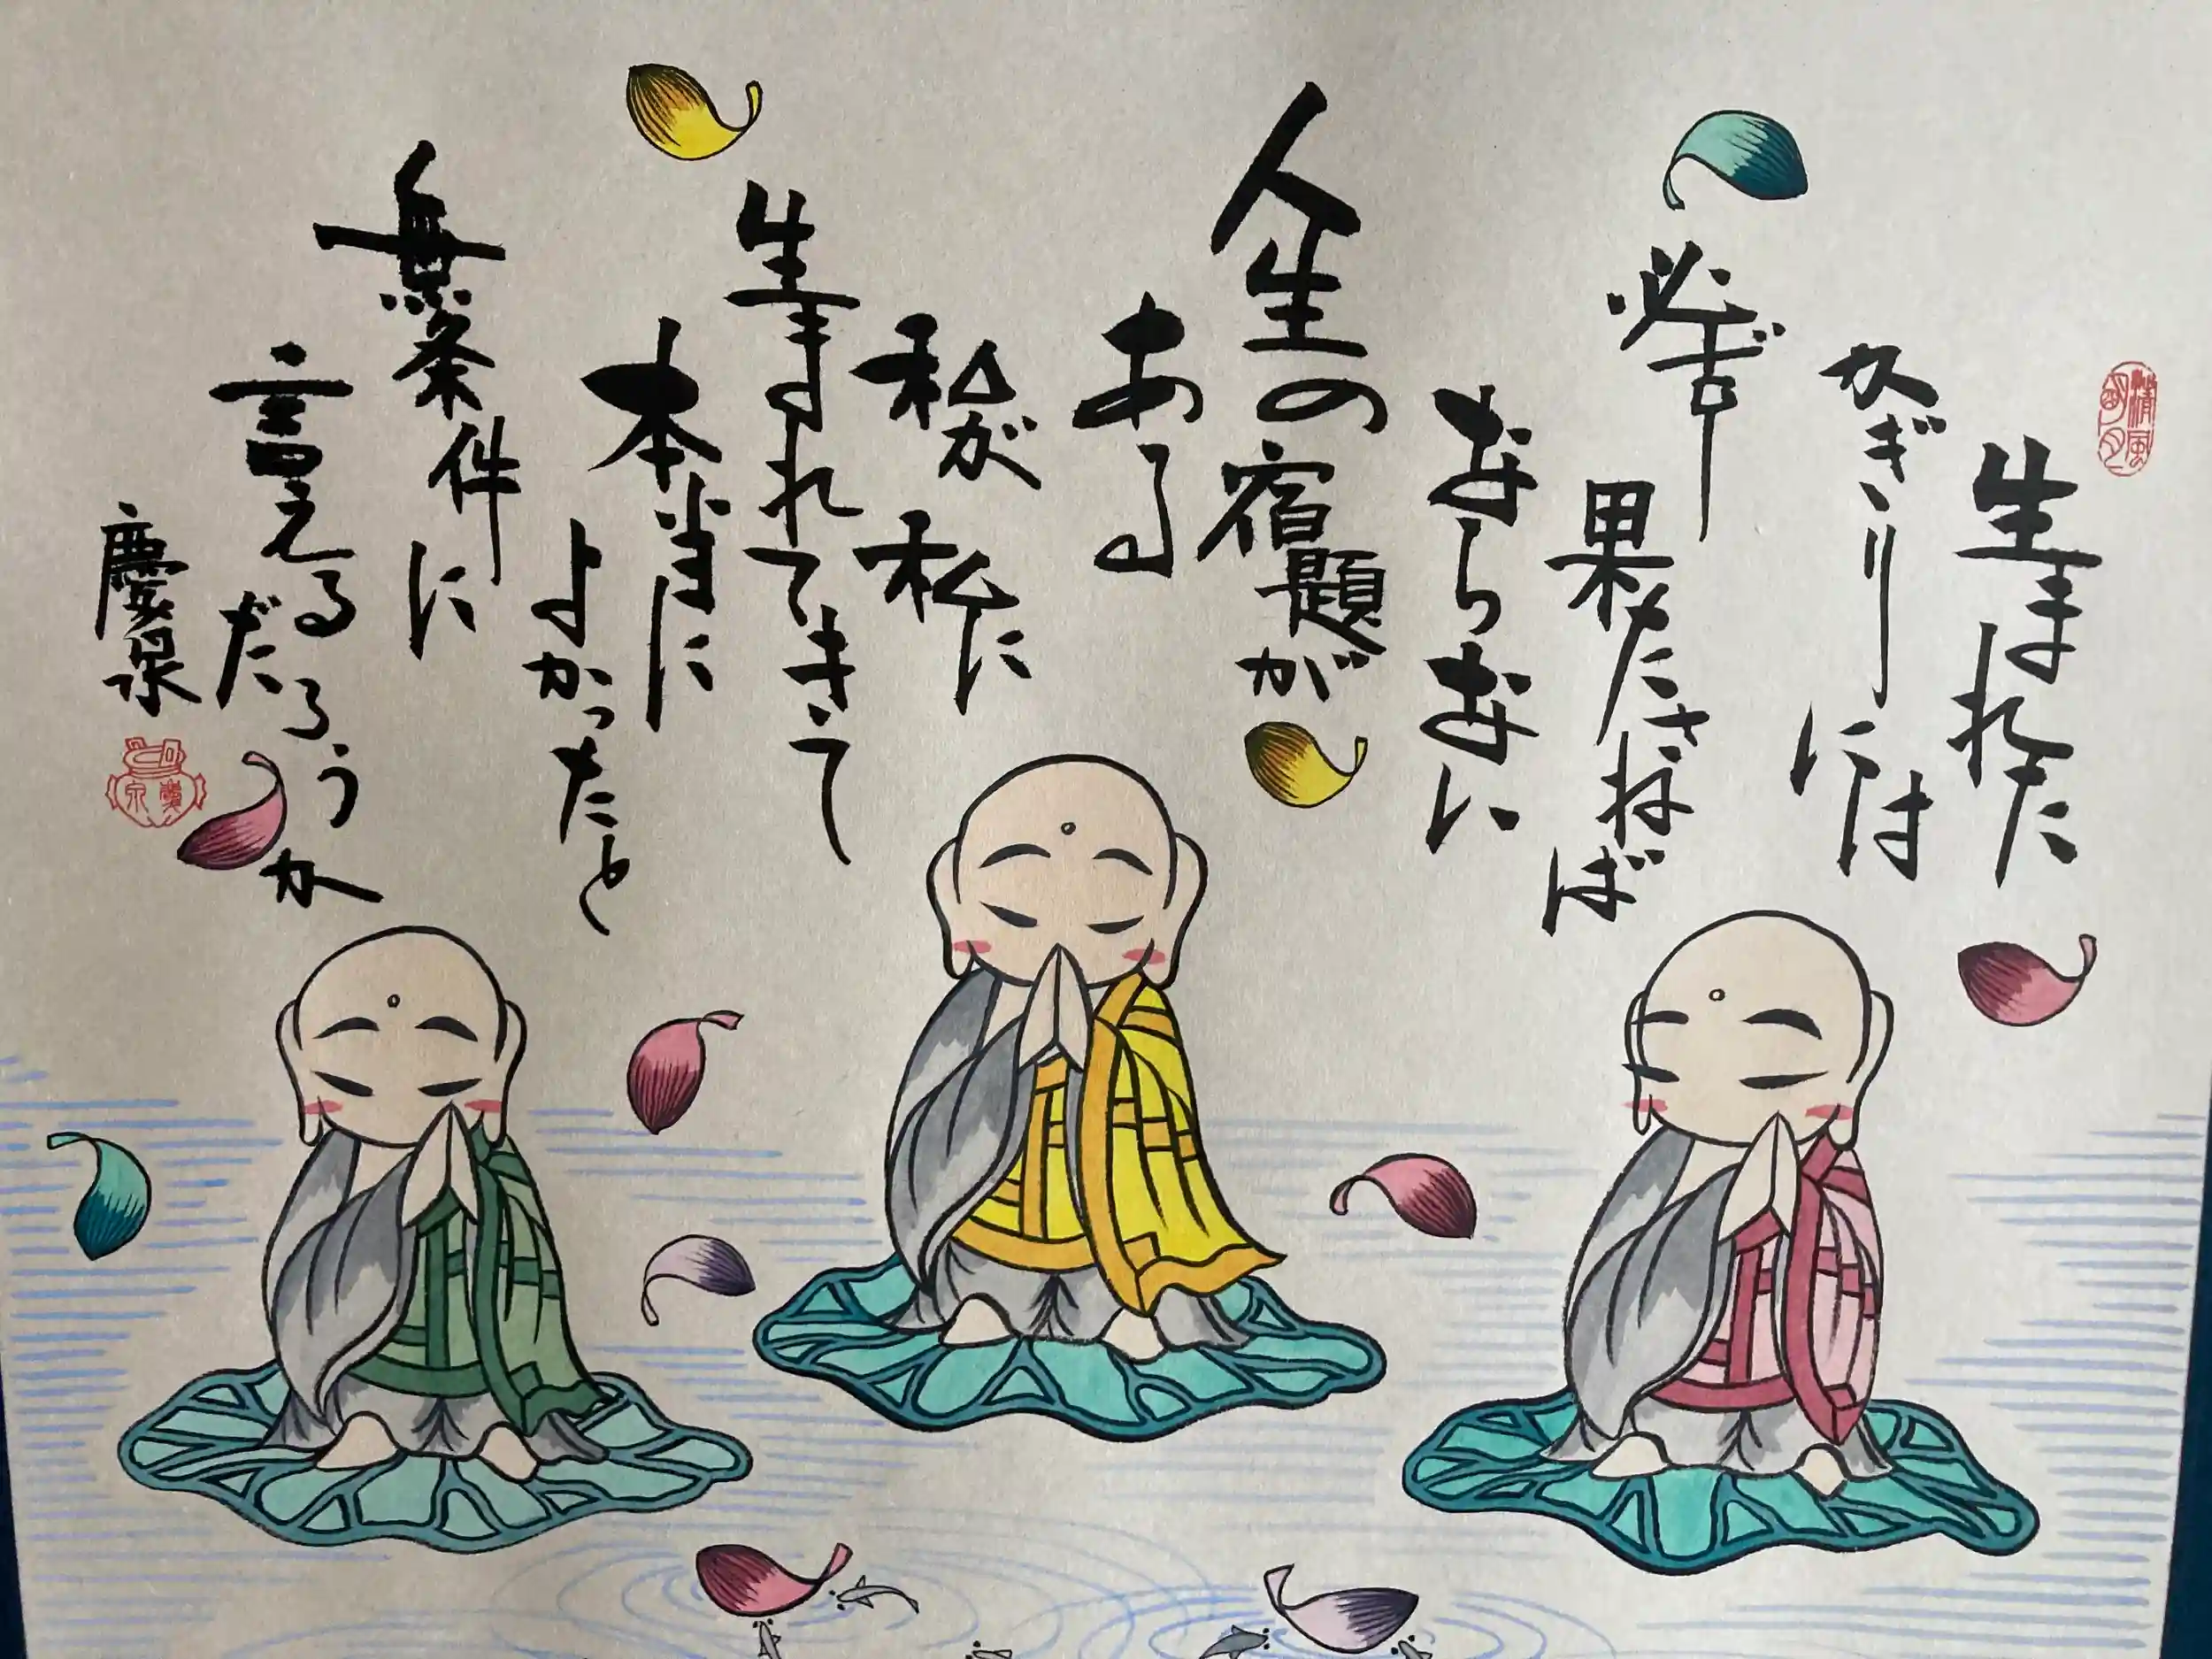 清風
明月
生まれた
かぎりには
必ず
果たさねば
ならない
人生の宿題が
ある
私が私に
生まれてきて
本当に
よかったと
無条件に
言えるだろうか
慶泉
慶泉